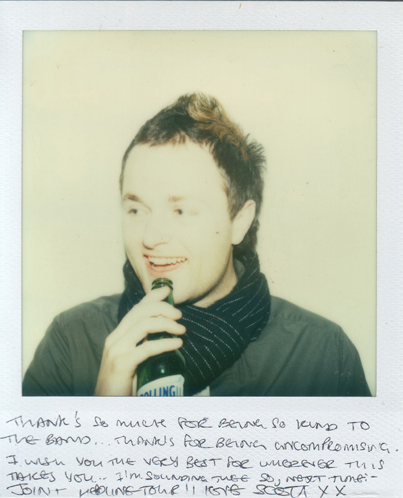 OLLING
THANK'S SO MUCH FOR BEING SO KIND TO
THE BAND... THANKS FOR BEING UNCOMPROMISING.
I WISH YOU THE VERY BEST FOR WHEREVER THIS
TAKES YOU.. I'M SOUNDING SO, NEXT TIME-
JOINT HEADLINE TOUR!! LOVE XX